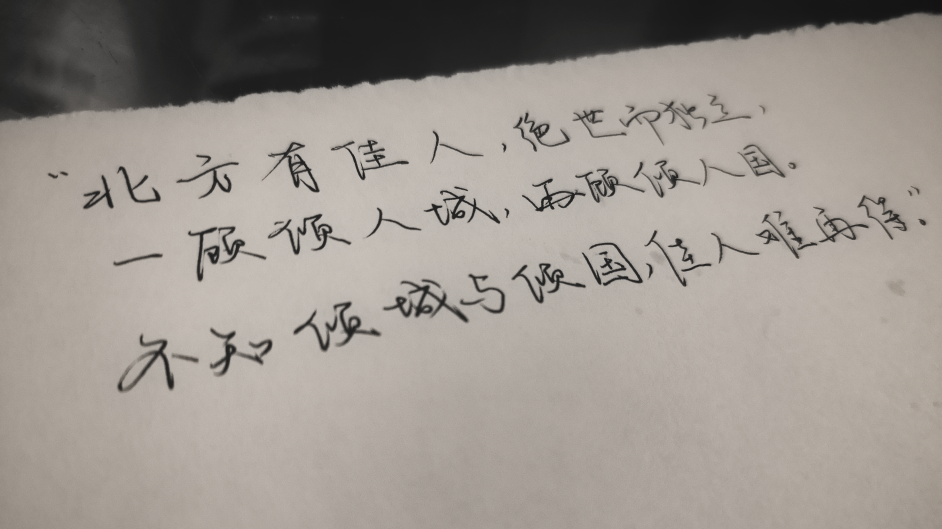 “北方有佳人，绝世而独立，
一顾倾人城，再顾倾人国。
不知倾城与倾国，佳人难再得”。